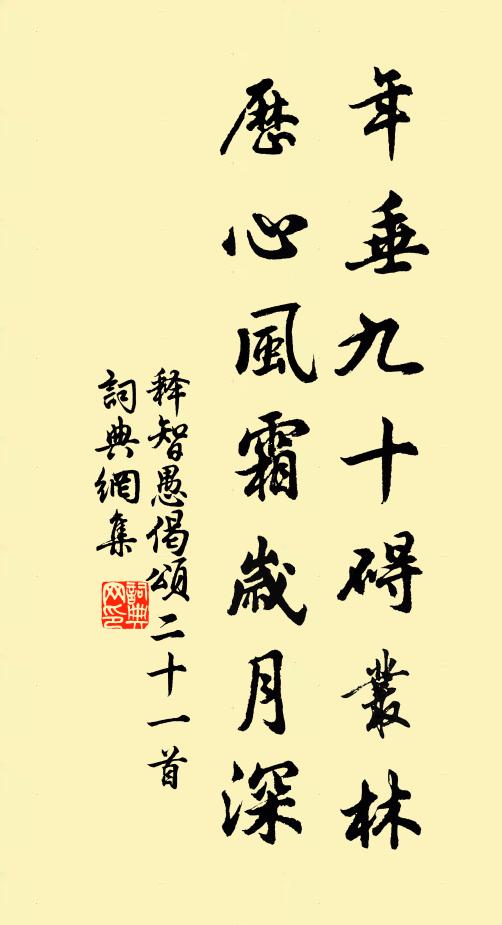 年垂九十碍叢林
歷心風霜歲月深
释智愚偈頌二十一首
詞典網集
詞典网印